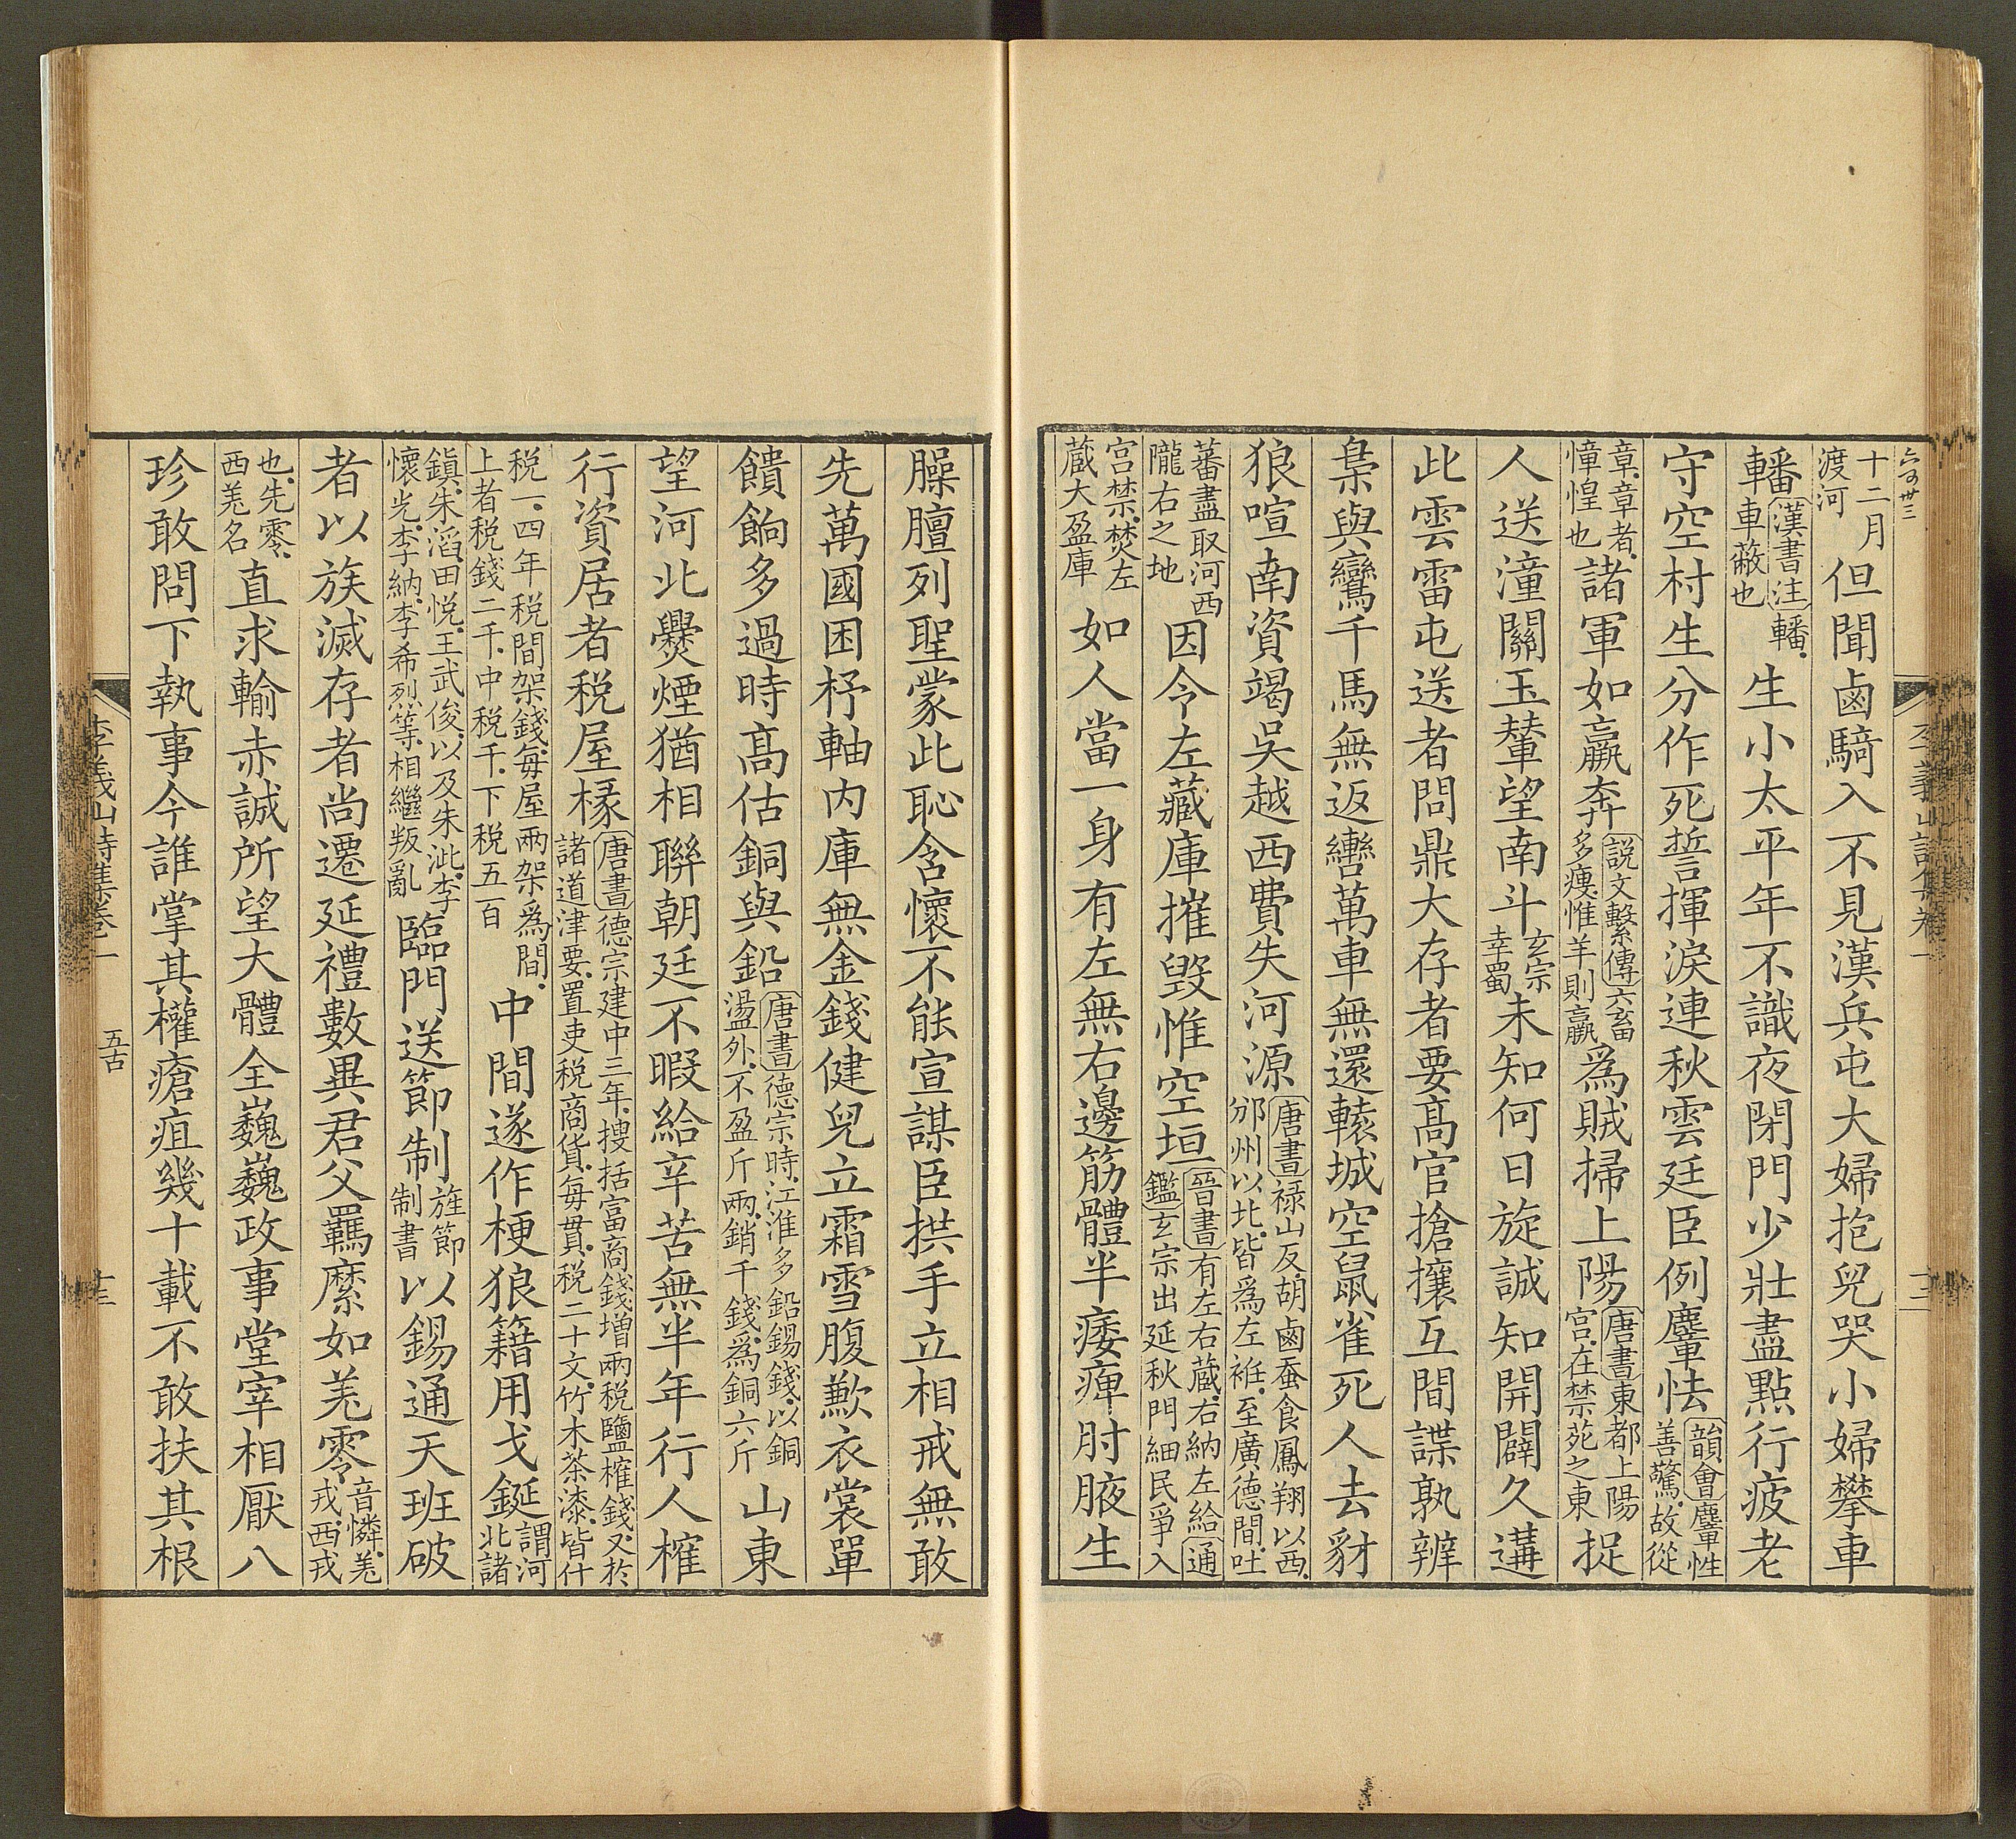 十二月渡河但聞鹵騎入不見漢兵屯大婦抱兒哭小婦攀車
轓漢書注轓車蔽也生小太平年不識夜閉門少壯盡點行疲老
守空村生分作死誓揮淚連秋雲廷臣例麞怯韻會麞性善驚故從
章章者慞惶也諸軍如羸奔説文繫傳六畜多瘦惟羊則羸爲賊掃上陽唐書東都上陽宮在禁苑之東捉
人送潼關玉輦望南斗玄宗幸蜀未知何日旋誠知開闢久遘
此雲雷屯送者問鼎大存者要高官搶攘互間諜孰辨
梟與鸞千馬無返轡萬車無還轅城空鼠雀死人去豺
狼喧南資竭吳越西費失河源唐書禄山反胡鹵蚕食鳳翔以西邠州以北皆爲左袵至廣德間吐
蕃盡取河西隴右之地因令左藏庫摧毀惟空垣晉書有左右藏右納左給通鑑玄宗出延秋門細民爭入
宮禁焚左藏大盈庫如人當一身有左無右邊筋體半痿痺肘腋生
臊膻列聖蒙此恥含懷不能宣謀臣拱手立相戒無敢
先萬國困杼軸内庫無金錢健兒立霜雪腹歉衣裳單
饋餉多過時高估銅與鉛唐書德宗時江淮多鉛錫錢以銅盪外不盈斤兩銷千錢爲銅六斤山東
望河北爨煙猶相聯朝廷不暇給辛苦無半年行人榷
行資居者税屋椽唐書德宗建中三年搜括富商錢增兩税鹽榷錢又於諸道津要置吏税商貨每貫税二十文竹木茶漆皆什
税一四年税間架錢每屋兩架爲間上者税錢二千中税千下税五百中間遂作梗狼籍用戈鋋謂河北諸
鎮朱滔田悦王武俊以及朱泚李懷光李納李希烈等相繼叛亂臨門送節制旌節制書以錫通天班破
者以族滅存者尚遷延禮數異君父羈縻如羌零音憐羌戎西戎
也先零西羌名直求輸赤誠所望大體全巍巍政事堂宰相厭八
珍敢問下執事今誰掌其權瘡疽幾十載不敢扶其根
李義山詩集卷一
五古
十三